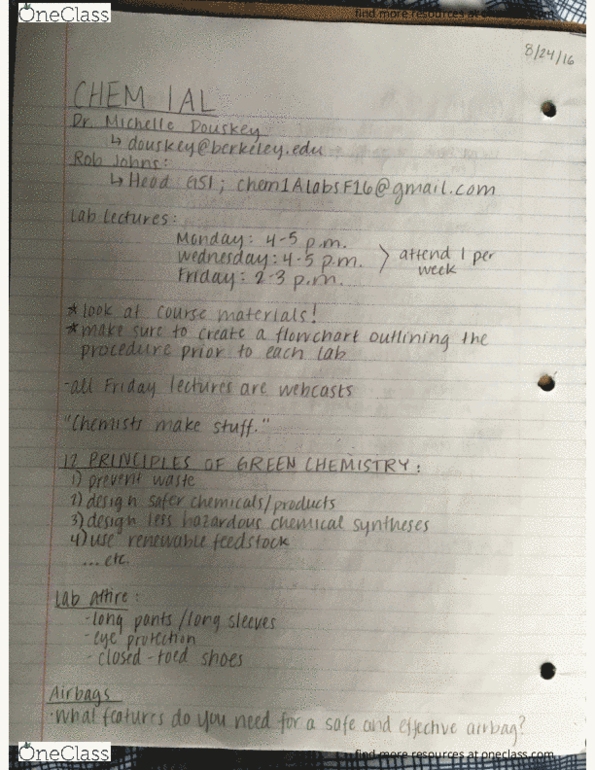 OneClass
find more resources at oneclass.com
8/24/16
CHEM 1AL
Dr. Michelle Douskey
↳ douskey@berkeley.edu
Rob Johns:
↳ Head GSI; chem1AlabsF16@gmail.com
Lab Lectures:
Monday: 4-5 p.m.
Wednesday: 4-5 p.m. > attend 1 per week
Friday: 2-3 p.m.
*look at course materials!
*make sure to create a flowchart outlining the
procedure prior to each lab
-all Friday lectures are webcasts
"Chemists make stuff."
12 PRINCIPLES OF GREEN CHEMISTRY:
1) prevent waste
2) design safer chemicals/products
3) design less hazardous chemical syntheses
4) use renewable feedstock
...etc.
Lab Attire:
-long pants/long sleeves
-eye protection
-closed-toed shoes
Airbags
·What features do you need for a safe and effective airbag?
OneClass
find more resources at oneclass.com